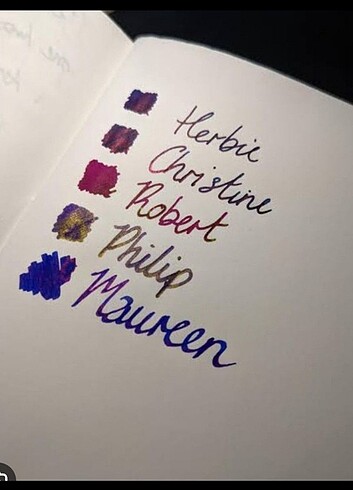 Herbie
Christine
Robert
Philip
Maureen